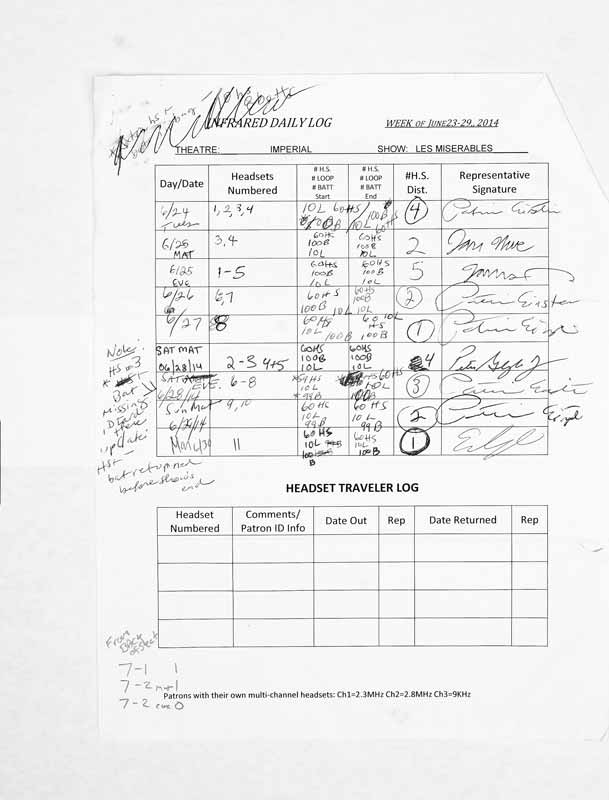 INFRARED DAILY LOG
WEEK OF JUNE 23-29, 2014
THEATRE: IMPERIAL SHOW: LES MISERABLES
Day/Date Headsets Numbered # H.S. # LOOP # BATT Start # H.S. # LOOP # BATT End #H.S. Dist. Representative Signature
6/24 Tues 1, 2, 3, 4 10L 60HS 100B 10L 60HS 4
6/25 MAT 3, 4 60HS 100B 10L 60HS 100B 10L 2
6/25 EVE 1-5 60HS 100B 10L 60HS 100B 10L 5
6/26 6,7 60HS 100B 10L 60HS 100B 10L 2
6/27 8 60HS 10L 100B 60 10L HS 100B 1
SAT MAT 06/28/14 2-3 4+5 60HS 100B 10L 60HS 100B 10L 4
SAT EVE. 6/28/14 6-8 *59HS 10L *99B 60HS 10L 100B 3
Sun Mat 6/29/14 9,10 60HS 10L 99B 60HS 10L 99B 2
Mon 6/30 11 60HS 10L 100B 60HS 10L 100B 1
Note:
HS on 3
Bat
missing
update:
HS+
bat returned
before show's
end
HEADSET TRAVELER LOG
Headset Numbered Comments/ Patron ID Info Date Out Rep Date Returned Rep
From
Back
of Sheet
7-1 1
7-2 mat 1
7-2 eve 0
Patrons with their own multi-channel headsets: Ch1=2.3MHz Ch2=2.8MHz Ch3=9KHz